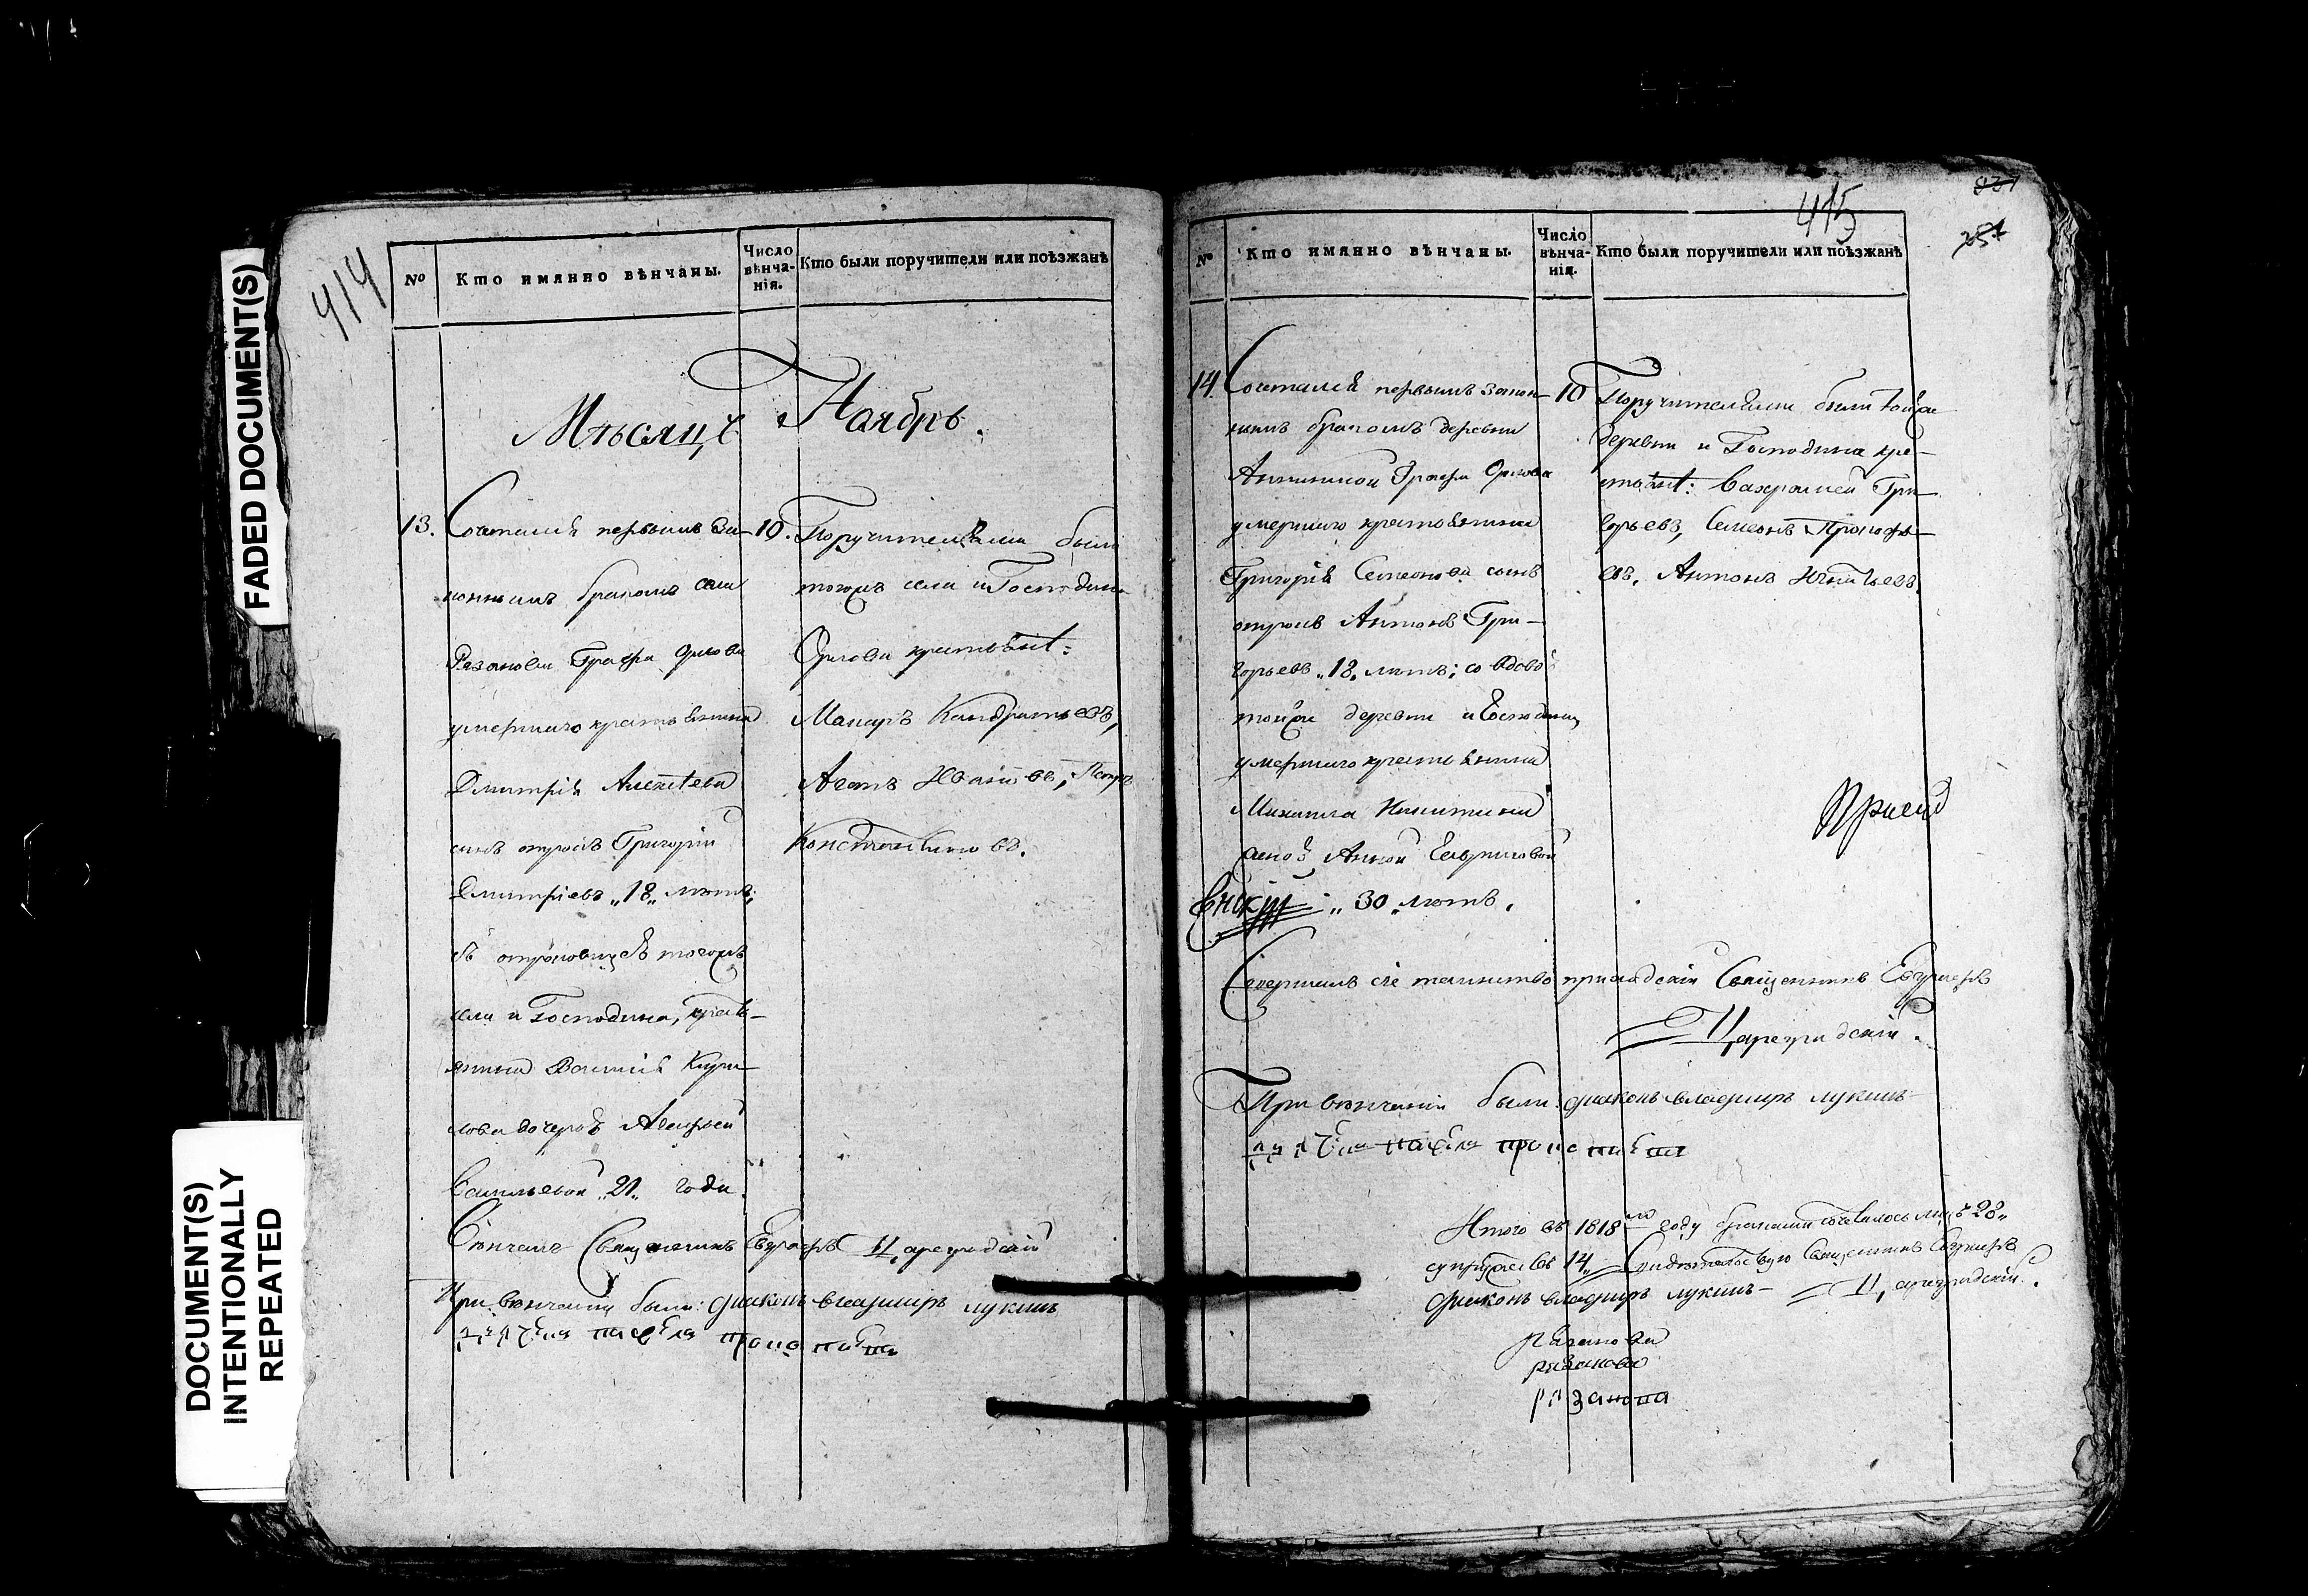 FADED DOCUMENT(S)
DOCUMENT(S)
INTENTIONALLY
REPEATED
414
№
Кто имянно вѣнчаны.
Число
вѣнча-
нія.
Кто были поручители или поѣзжанѣ
Мѣсяцъ Ноябрь.
13.
Сочтался первымъ за-
коннымъ бракомъ села
Рязанова Графа Орлова
умершаго крестьянина
Дмитрія Алексѣева
сынъ отрокъ Григорій
Дмитріевъ „18„ лѣтъ;
съ отроковицей тогожъ
села и Господина, кресть-
янина Василія Кири-
лова дочерью
Васильевой „21„ года.
10.
Поручителями были
тогожъ села и Господина
Орлова крестьянѣ:
Макаръ Кандратьевъ,
Ивановъ, Петръ
Константиновъ.
Вѣнчалъ Священникъ Евграфъ Цареградскій
При вѣнчаніи были: диаконъ владимиръ лукинъ
415
251
№
Кто имянно вѣнчаны.
Число
вѣнча-
нія.
Кто были поручители или поѣзжанѣ
14.
Сочтался первымъ закон-
нымъ бракомъ деревни
Графа Орлова
умершаго крестьянина
Григорія Семенова сынъ
отрокъ Антонъ Гри-
горьевъ „18„ лѣтъ; со вдовой
тойже деревни и Господина
умершаго крестьянина
Михаила Никитина
женой Анной
„30„ лѣтъ.
10
Поручителями были тойже
деревни и Господина кре-
стьянѣ: Вахрамей Гри-
горьевъ, Семенъ Прокофь-
евъ, Антонъ Игнатьевъ.
Совершилъ сіе таинство приходскій Священникъ Евграфъ
Цареградскій.
При вѣнчаніи были: диаконъ владимиръ лукинъ
Итого въ 1818мъ году браками сочеталось лицъ 28„
супружествъ 14„ Свидѣтельствую Священникъ Евграфъ
диаконъ владимиръ лукинъ Цареградскій.
рязанова
рязанова